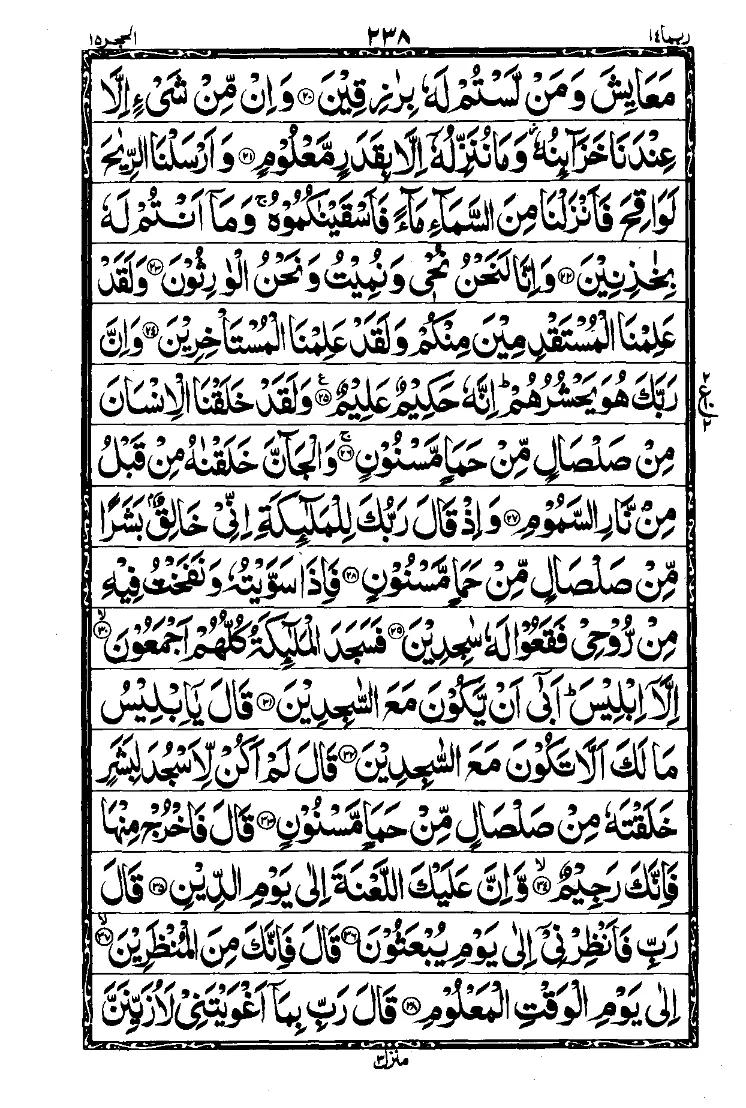 ربما ١٤ ٢٣٨ الحجر ١٥
مَعَايِشَ وَمَنْ لَّسْتُمْ لَهٗ بِرٰزِقِيْنَ ۝٢٠ وَاِنْ مِّنْ شَيْءٍ اِلَّا
عِنْدَنَا خَزَآىِٕنُهٗ ۡ وَمَا نُنَزِّلُهٗٓ اِلَّا بِقَدَرٍ مَّعْلُوْمٍ ۝٢١ وَاَرْسَلْنَا الرِّيٰحَ
لَوَاقِحَ فَاَنْزَلْنَا مِنَ السَّمَآءِ مَآءً فَاَسْقَيْنٰكُمُوْهُ ۚ وَمَآ اَنْتُمْ لَهٗ
بِخٰزِنِيْنَ ۝٢٢ وَاِنَّا لَنَحْنُ نُحْيٖ وَنُمِيْتُ وَنَحْنُ الْوٰرِثُوْنَ ۝٢٣ وَلَقَدْ
عَلِمْنَا الْمُسْتَقْدِمِيْنَ مِنْكُمْ وَلَقَدْ عَلِمْنَا الْمُسْتَاْخِرِيْنَ ۝٢٤ وَاِنَّ
رَبَّكَ هُوَ يَحْشُرُهُمْ ؕ اِنَّهٗ حَكِيْمٌ عَلِيْمٌ ۝٢٥ ع وَلَقَدْ خَلَقْنَا الْاِنْسَانَ
٢ ع ٢
مِنْ صَلْصَالٍ مِّنْ حَمَاٍ مَّسْنُوْنٍ ۝٢٦ ۚ وَالْجَآنَّ خَلَقْنٰهُ مِنْ قَبْلُ
مِنْ نَّارِ السَّمُوْمِ ۝٢٧ وَاِذْ قَالَ رَبُّكَ لِلْمَلٰٓىِٕكَةِ اِنِّيْ خَالِقٌۢ بَشَرًا
مِّنْ صَلْصَالٍ مِّنْ حَمَاٍ مَّسْنُوْنٍ ۝٢٨ فَاِذَا سَوَّيْتُهٗ وَنَفَخْتُ فِيْهِ
مِنْ رُّوْحِيْ فَقَعُوْا لَهٗ سٰجِدِيْنَ ۝٢٩ فَسَجَدَ الْمَلٰٓىِٕكَةُ كُلُّهُمْ اَجْمَعُوْنَ ۝٣٠ ۙ
اِلَّآ اِبْلِيْسَ ؕ اَبٰٓى اَنْ يَّكُوْنَ مَعَ السّٰجِدِيْنَ ۝٣١ قَالَ يٰٓاِبْلِيْسُ
مَا لَكَ اَلَّا تَكُوْنَ مَعَ السّٰجِدِيْنَ ۝٣٢ قَالَ لَمْ اَكُنْ لِّاَسْجُدَ لِبَشَرٍ
خَلَقْتَهٗ مِنْ صَلْصَالٍ مِّنْ حَمَاٍ مَّسْنُوْنٍ ۝٣٣ قَالَ فَاخْرُجْ مِنْهَا
فَاِنَّكَ رَجِيْمٌ ۝٣٤ ۙ وَّاِنَّ عَلَيْكَ اللَّعْنَةَ اِلٰى يَوْمِ الدِّيْنِ ۝٣٥ قَالَ
رَبِّ فَاَنْظِرْنِيْٓ اِلٰى يَوْمِ يُبْعَثُوْنَ ۝٣٦ قَالَ فَاِنَّكَ مِنَ الْمُنْظَرِيْنَ ۝٣٧ ۙ
اِلٰى يَوْمِ الْوَقْتِ الْمَعْلُوْمِ ۝٣٨ قَالَ رَبِّ بِمَآ اَغْوَيْتَنِيْ لَاُزَيِّنَنَّ
منزل ٣